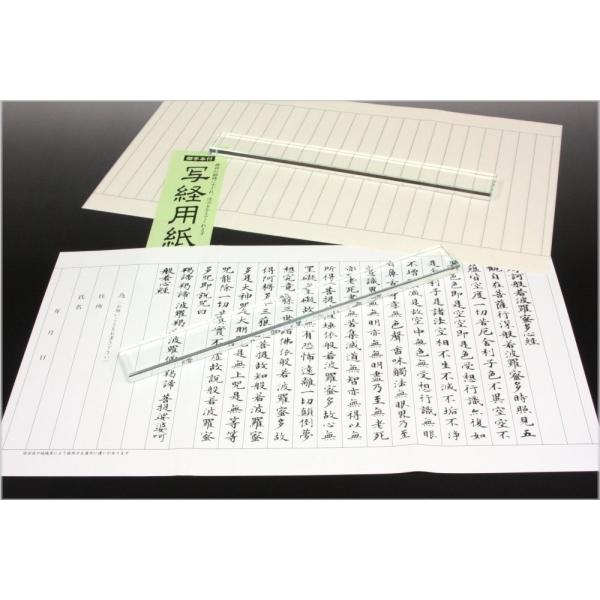 御手本付
写経用紙
訶般若波羅蜜多心経
観自在菩薩行深般若波羅蜜多時照見五
蘊皆空度一切苦厄舎利子色不異空空不
色色即是空空即是色受想行識亦復如
是舎利子是諸法空相不生不滅不垢不浄
不増不減是故空中無色無受想行識無眼
耳鼻舌身意無色声香味触法無眼界乃至
無意識界無無明亦無無明尽乃至無老死
亦無老死尽無苦集滅道無智亦無得以無
所得故菩提薩埵依般若波羅蜜多故心無
罣礙無罣礙故無有恐怖遠離一切顛倒夢
想究竟涅槃三世諸佛依般若波羅蜜多故
得阿耨多羅三藐三菩提故知般若波羅蜜
多是大神呪是大明呪是無上呪是無等等
呪能除一切苦真実不虚故説般若波羅蜜
多呪即説呪曰
羯諦羯諦波羅羯諦波羅僧羯諦菩提娑婆訶
般若心経
為
住所
氏名
年 月 日